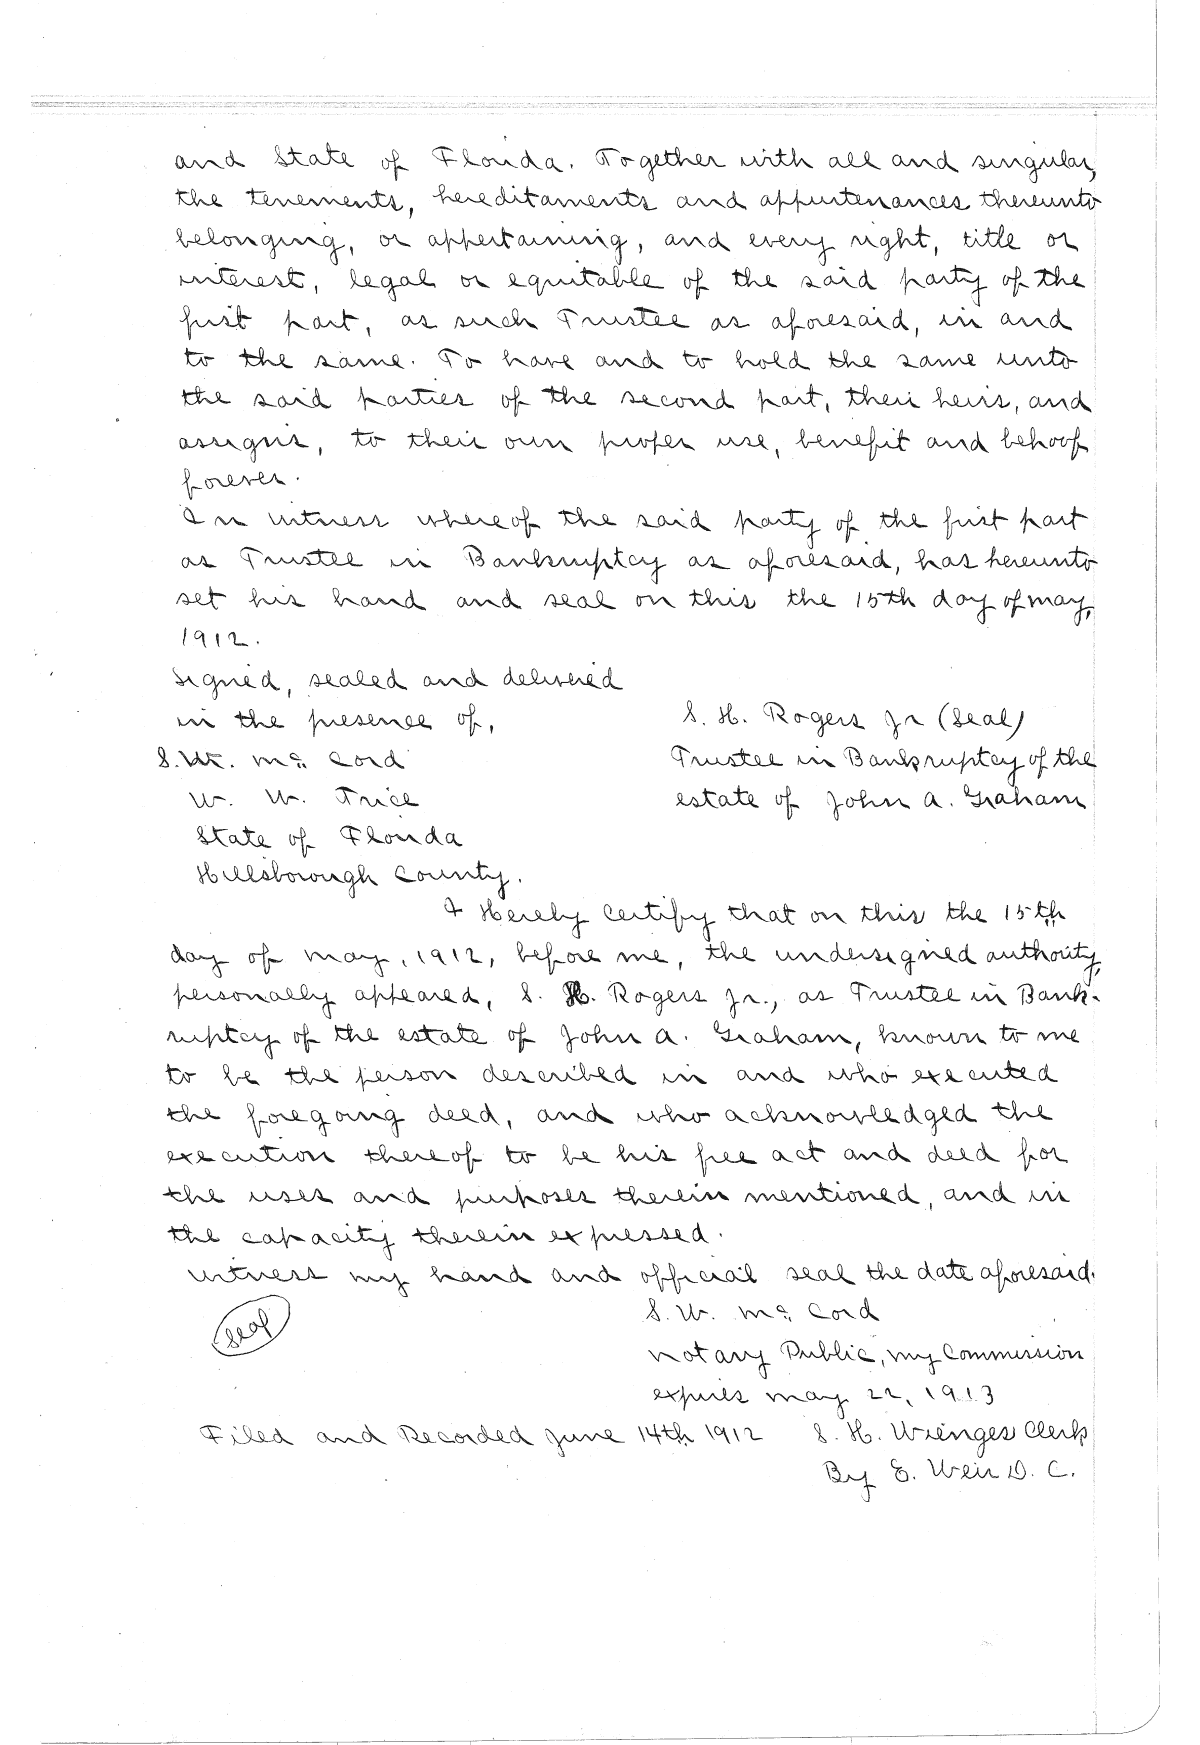 and State of Florida. Together with all and singular,
the tenements, hereditaments and appurtenances thereunto
belonging, or appertaining, and every right, title or
interest, legal or equitable of the said party of the
first part, as such Trustee as aforesaid, in and
to the same. To have and to hold the same unto
the said parties of the second part, their heirs, and
assigns, to their own proper use, benefit and behoof
forever.
In witness whereof the said party of the first part
as Trustee in Bankruptcy as aforesaid, has hereunto
set his hand and seal on this the 15th day of May,
1912.
Signed, sealed and delivered
in the presence of,
S. H. Rogers Jr (Seal)
S. W. McCord
Trustee in Bankruptcy of the
W. W. Trice
estate of John A. Graham
State of Florida
Hillsborough County.
I Hereby certify that on this the 15th
day of May, 1912, before me, the undersigned authority,
personally appeared, S. H. Rogers Jr., as Trustee in Bank-
ruptcy of the estate of John A. Graham, known to me
to be the person described in and who executed
the foregoing deed, and who acknowledged the
execution thereof to be his free act and deed for
the uses and purposes therein mentioned, and in
the capacity therein expressed.
Witness my hand and official seal the date aforesaid.
S. W. McCord
Seal
Notary Public, my Commission
expires May 22, 1913
Filed and Recorded June 14th 1912 S. H. Wienges Clerk
By E. Weir D. C.